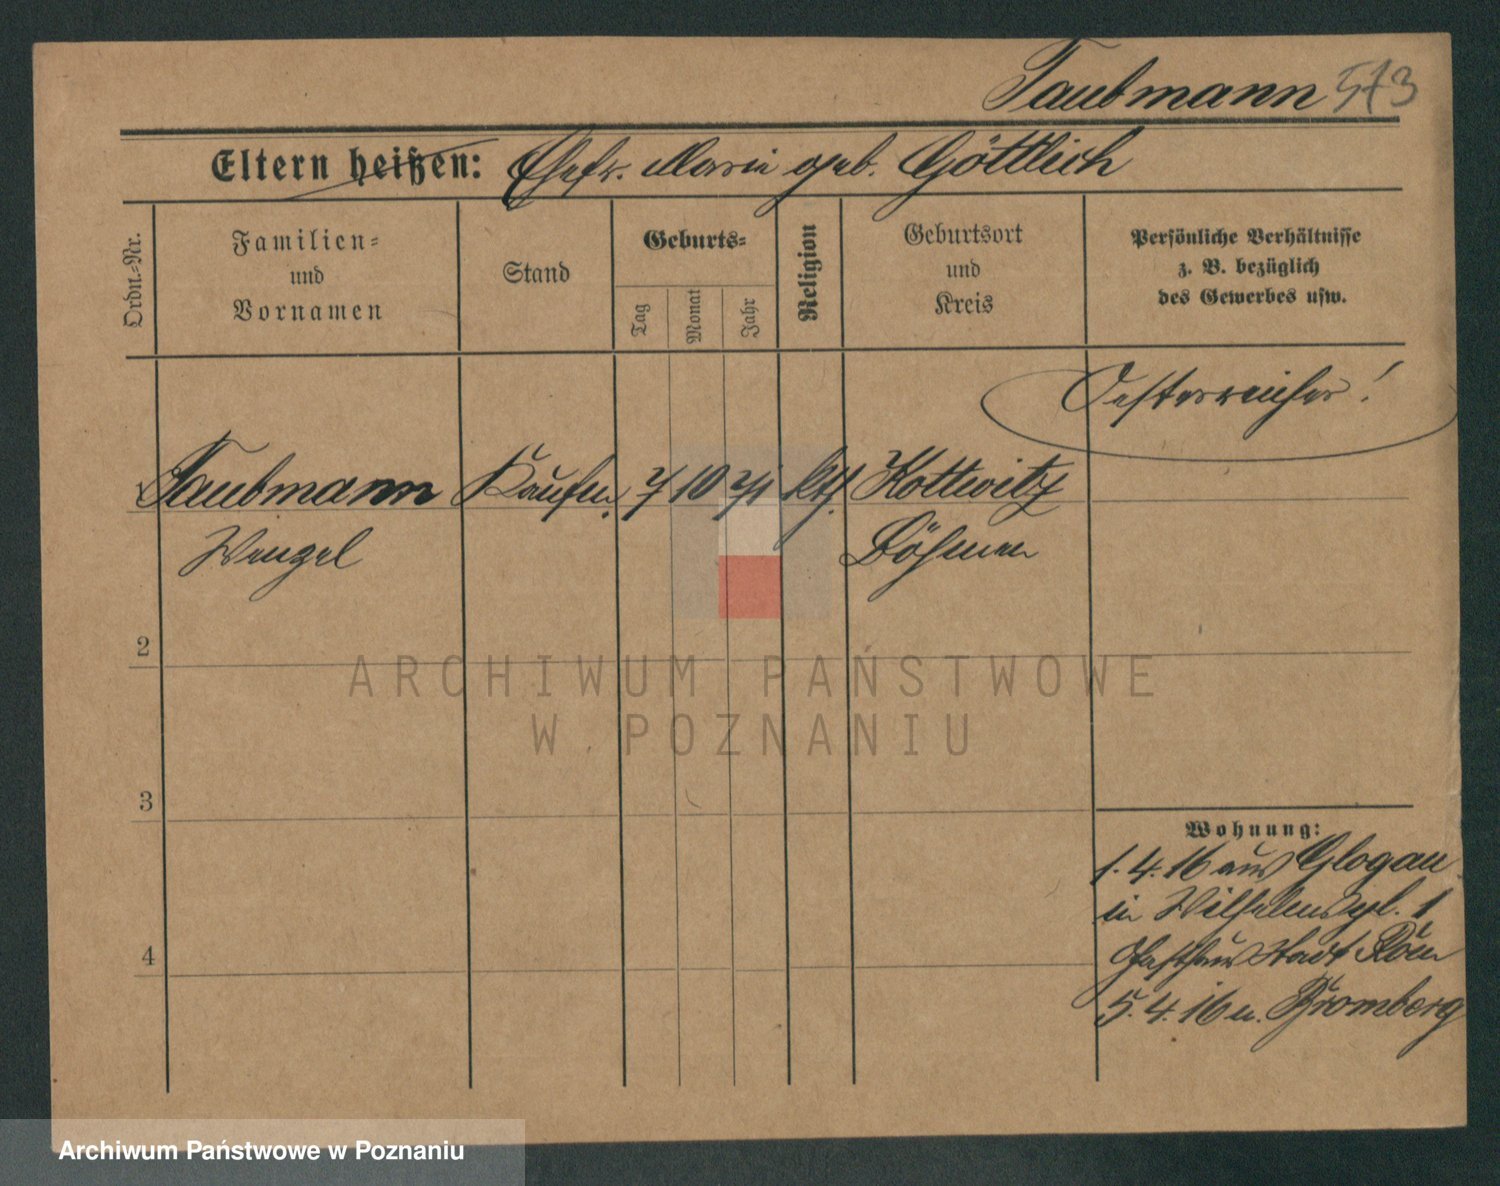 Taubmann 573
Eltern heißen: Ehefr. Marie geb. Göttlich
Ordn.-Nr.
Familien-
und
Vornamen
Stand
Geburts-
Tag
Monat
Jahr
Religion
Geburtsort
und
Kreis
Persönliche Verhältnisse
z. B. bezüglich
des Gewerbes usw.
Oesterreicher!
Taubmann Kaufm. 7 10 74 kth. Kottwitz
Wenzel Böhmen
2
3
4
Wohnung:
1.4.16 aus Glogau
in Wilhelmspl. 1
Gasthaus Stadt Rom
5.4.16 n. Bromberg
ARCHIWUM PAŃSTWOWE
W POZNANIU
Archiwum Państwowe w Poznaniu